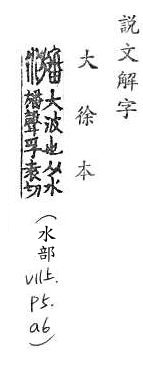 説文解字
大徐本
㶗
大波也从水
旛聲孚袁切
(水部VII上.
P5.
a6)